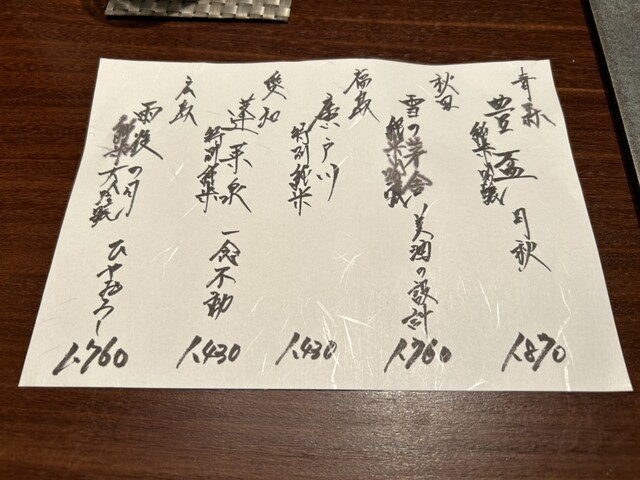 青森
豊盃 月秋
純米吟醸
1,870
秋田
雪の茅舎 美酒の設計
純米吟醸
1,760
福島
廣戸川
特別純米
1,430
愛知
蓬莱泉 一念不動
特別純米
1,430
広島
雨後の月 ひやおろし
純米大吟醸
1,760